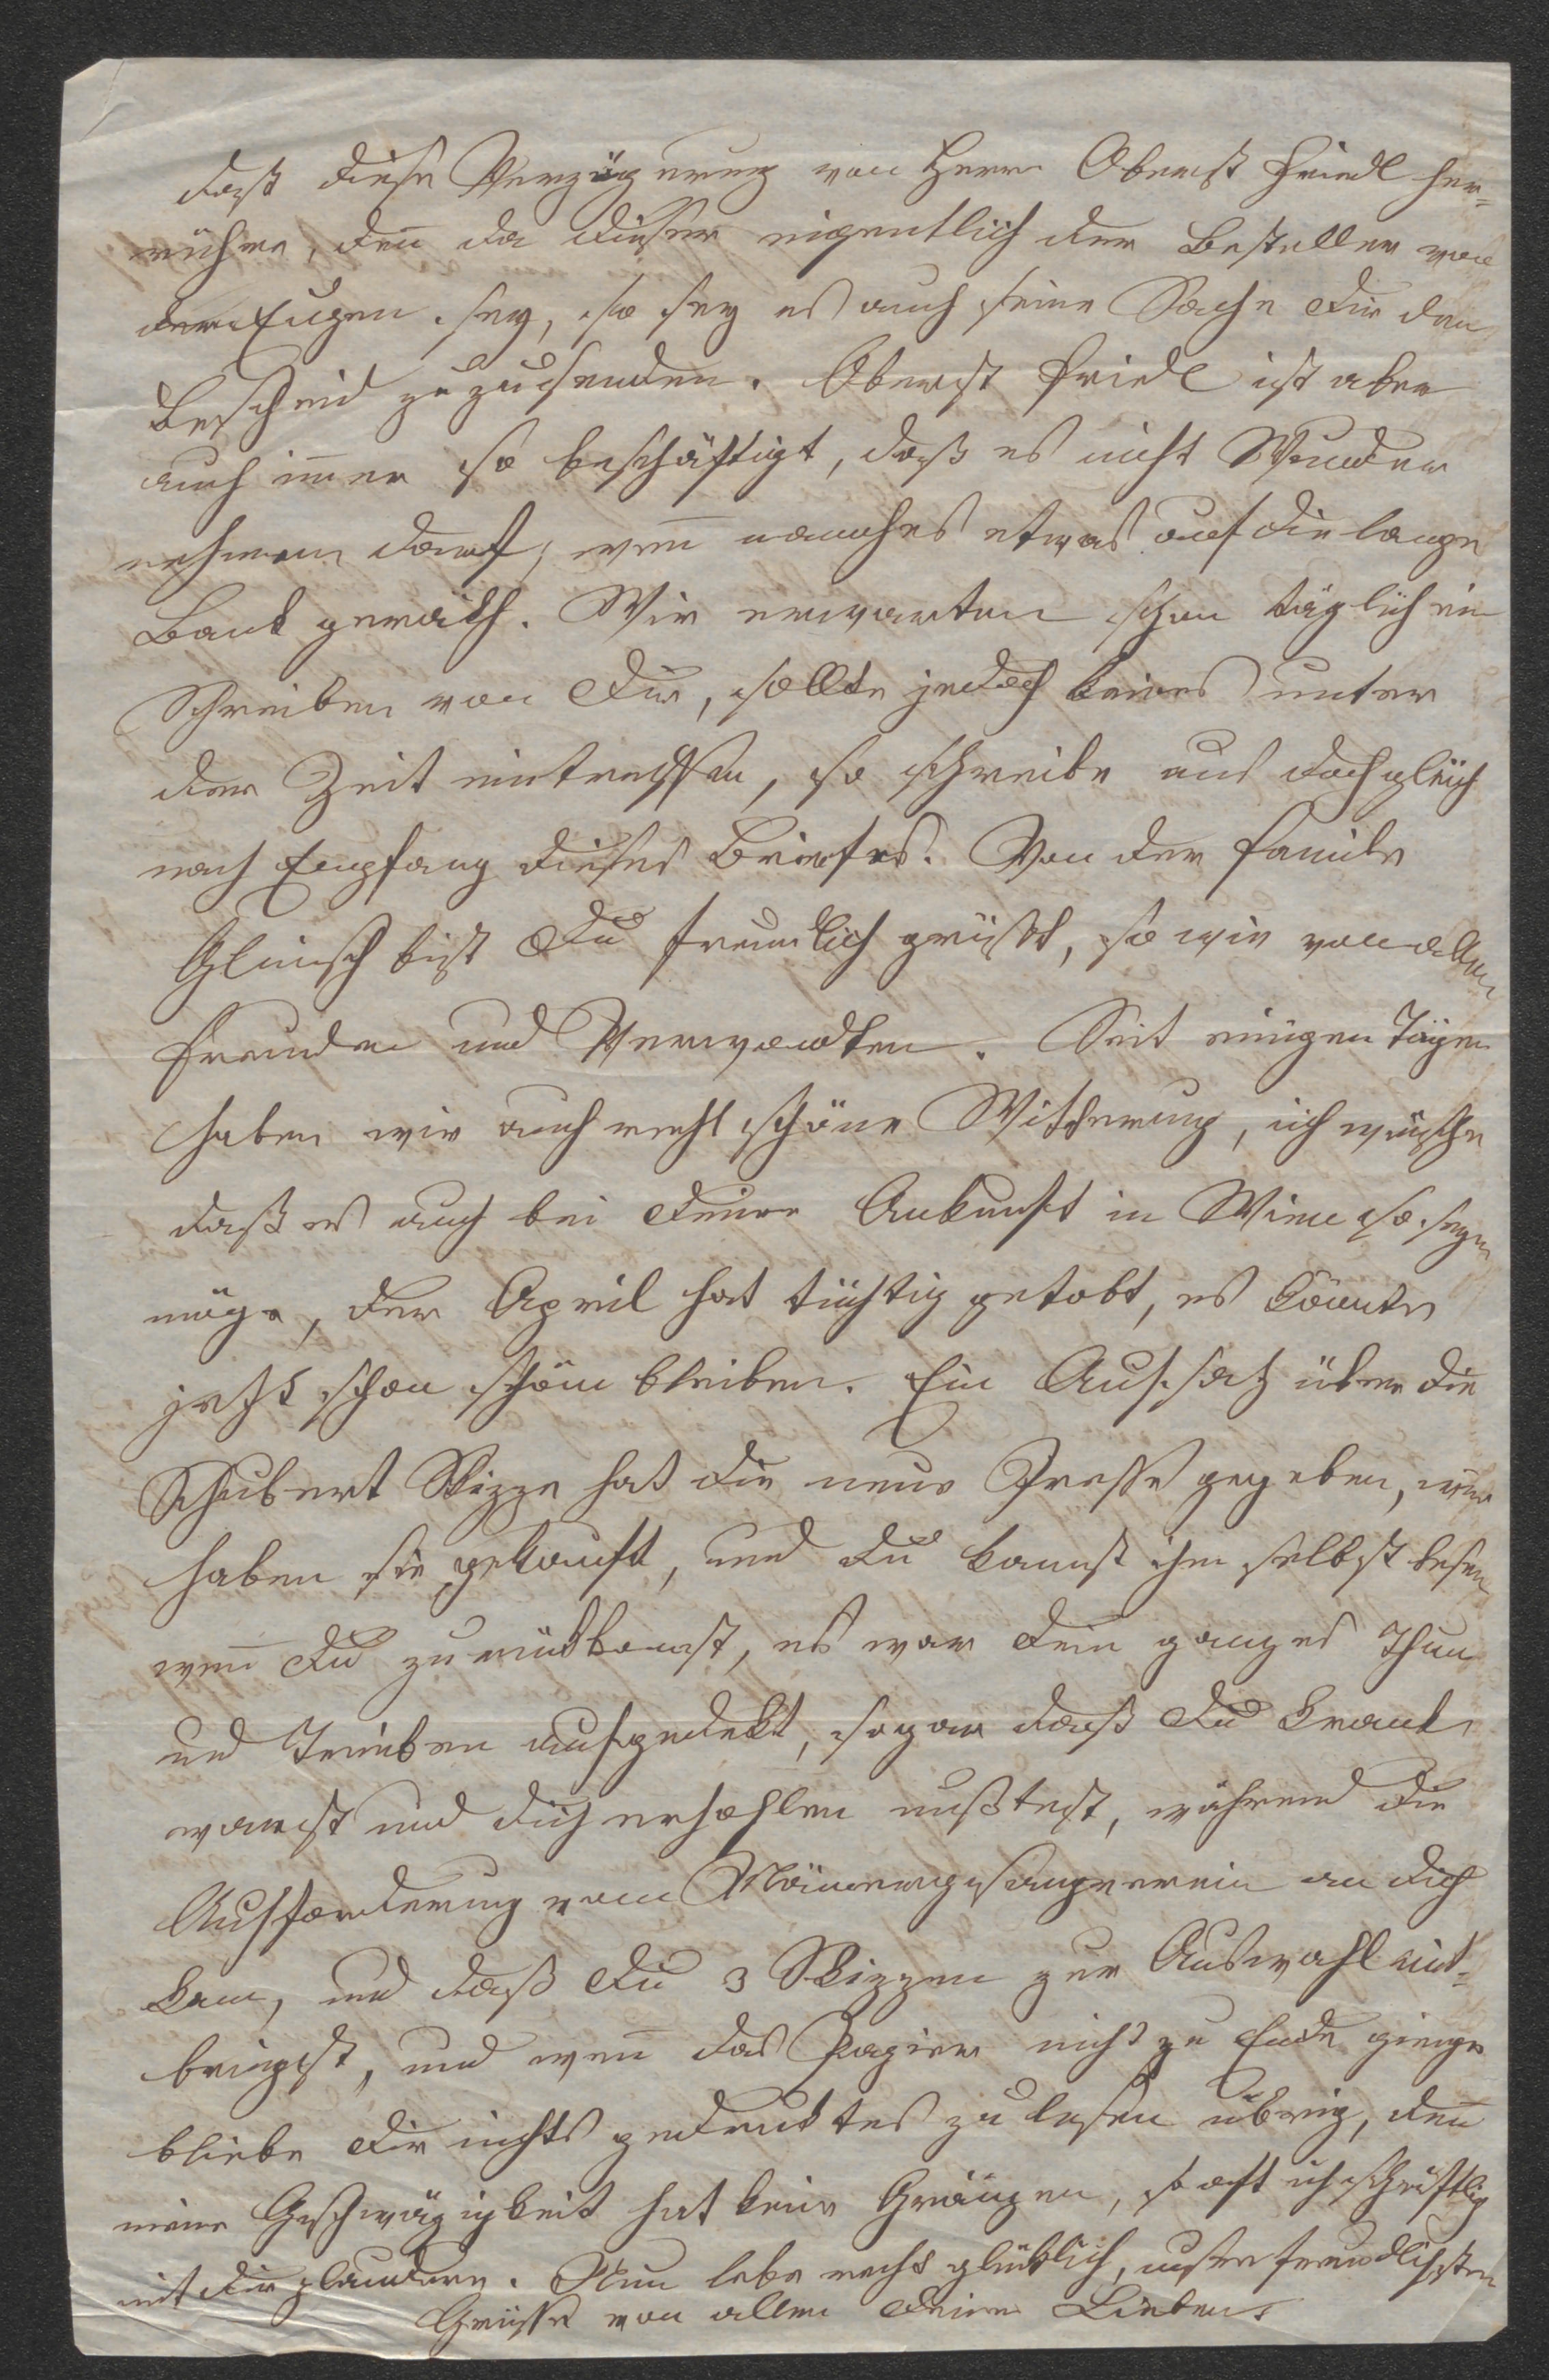 daß diese Verzögerung von Herr Oberst Friedl her=
rühre, den̅ da dieser eigentlich der Besteller von
der Eugen. sey, so sey es auch seine Sache Dir den
Bescheid zuzusenden. Oberst Fridl ist aber
auch im̅er so beschäftigt, daß es nicht Wunder
nehmen darf, wen̅ manches etwas auf die lange
Bank geräth. Wir erwarten schon täglich ein
Schreiben von Dir, sollte jedoch keines unter
der Zeit eintreffen, so schreibe uns doch gleich
nach Empfang dieses Briefes. Von der Familie
bist Du freundlich grüßt, so wie von allen
Freunden und Verwandten. Seit einigen Tagen
haben wir auch recht schöne Witterung, ich wünsche
daß es auch bei Deiner Ankunft in Wien so seyn
möge, der April hat tüchtig getobt, es könnte
jetzt schon schön bleiben. Ein Aufsatz über die
Schubert Skizze hat die neue Presse gegeben, wir
haben sie gekauft, und Du kannst ihn selbst lesen
wen̅ Du zurückkomst, es war Dein ganzes Thun
und Treiben aufgedekt, sogar daß Du krank
warst und Dich erhohlen mußtest, während die
Aufforderung vom Männergesangverein an Dich
kam, und daß Du 3 Skizzen zur Auswahl mit=
bringst, und wen̅ das Papier nicht zu Ende ginge
bliebe Dir nichts gedruktes zu lesen übrig, den̅
meine Geschwäzigkeit hat keine Gränzen, so oft ich schriftlich
mit Dir plaudere. Nun lebe recht glücklich, unsere freundlichsten
Grüsse von allen Deinen Lieben.